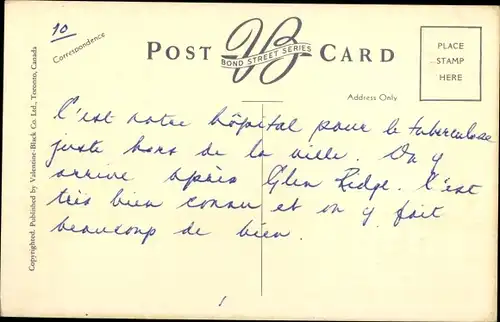 10
Correspondence
POST CARD
VB
BOND STREET SERIES
PLACE
STAMP
HERE
Address Only
Copyrighted. Published by Valentine-Black Co. Ltd., Toronto, Canada
C'est notre hôpital pour le tuberculose
juste hors de la ville. On y
arrive après Glen Ridge. C'est
très bien connu et on y fait
beaucoup de bien.